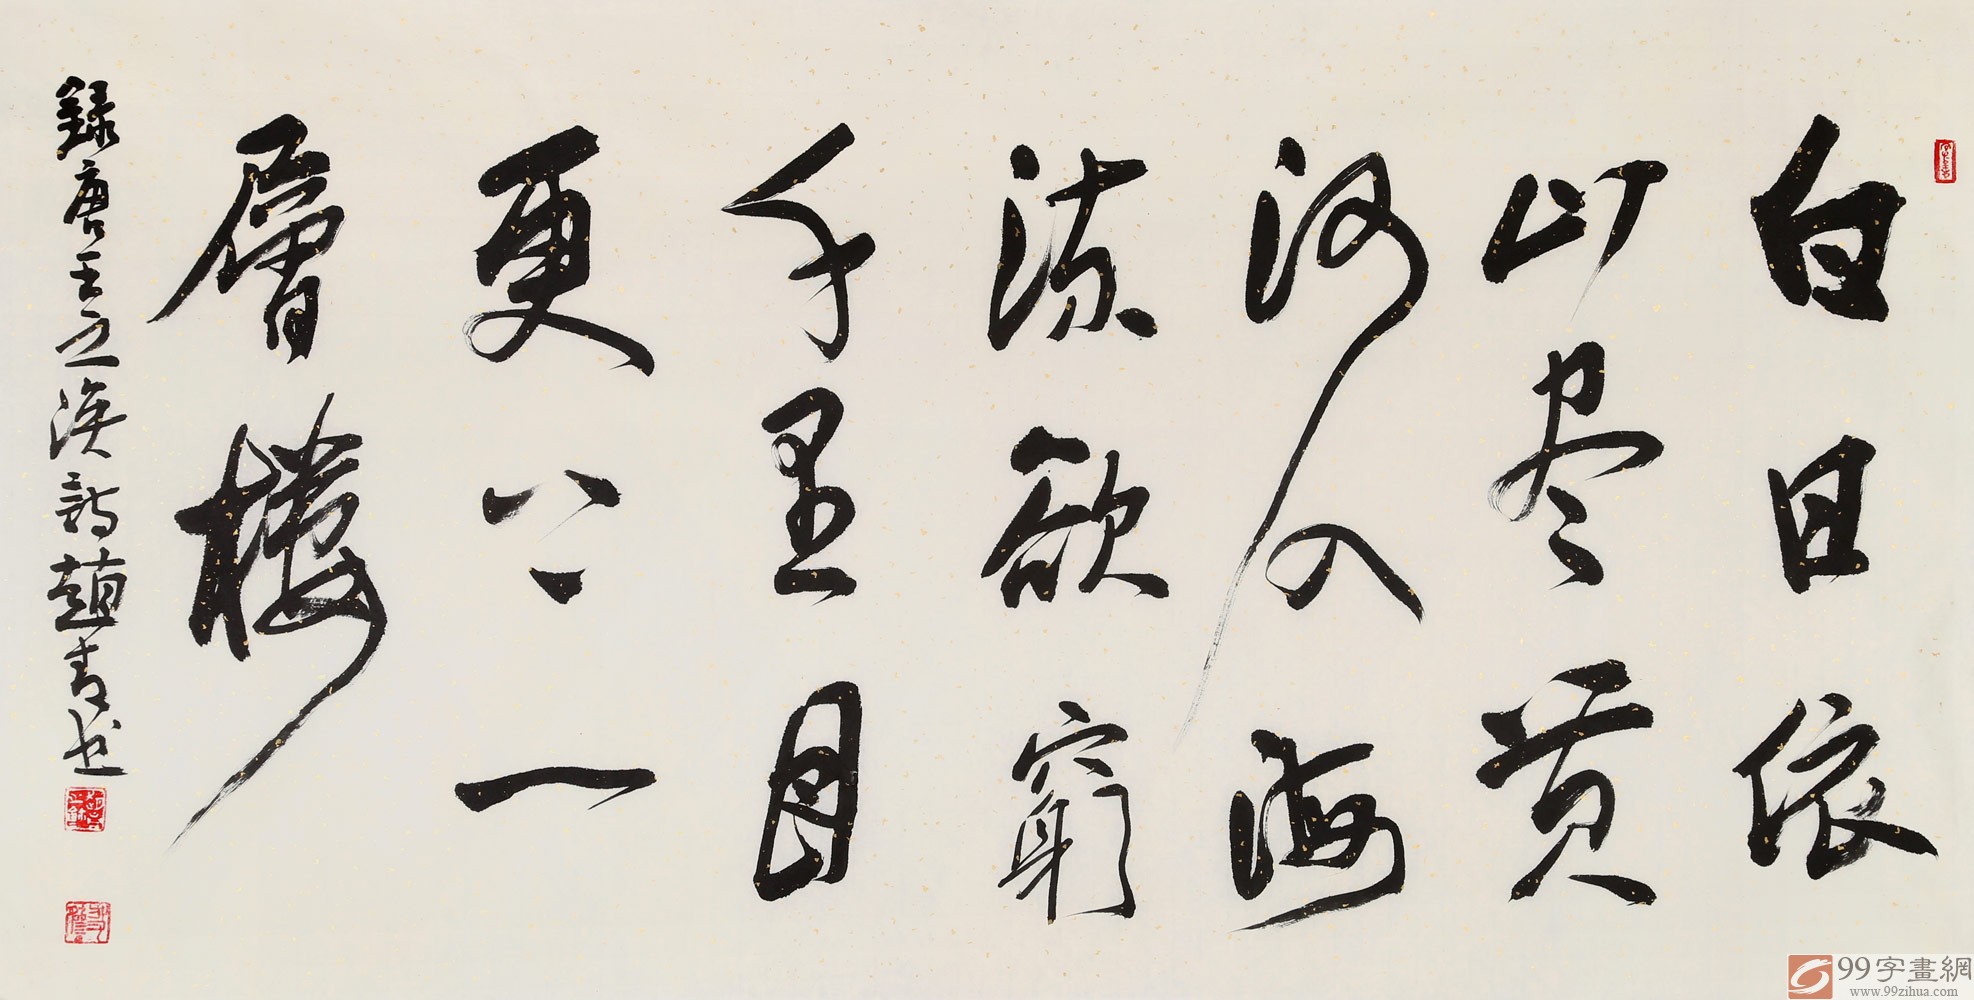 白日依
山尽黄
河入海
流欲窮
千里目
更上一
層樓
録唐王之渙詩趙青书
99字畫網
www.99zihua.com